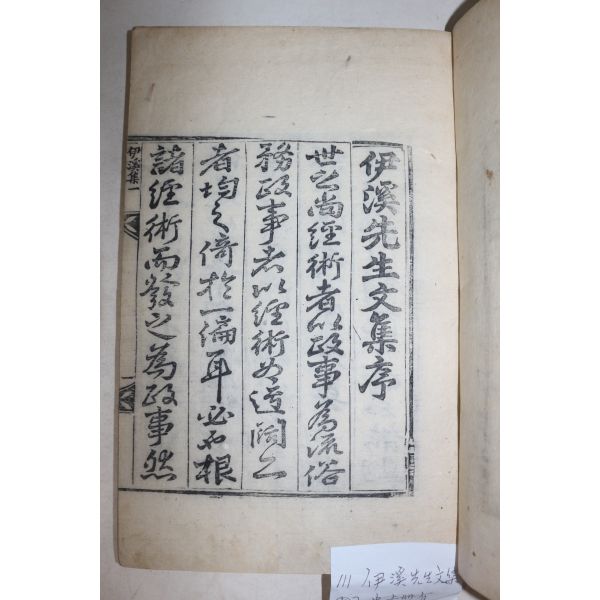 伊溪先生文集序
世之尚經術者以政事爲流俗
務政事者以經術爲迂闊之
者均之倚於一偏耳必也根
諸經術而發之爲政事然
伊溪集一
111 伊溪先生文集